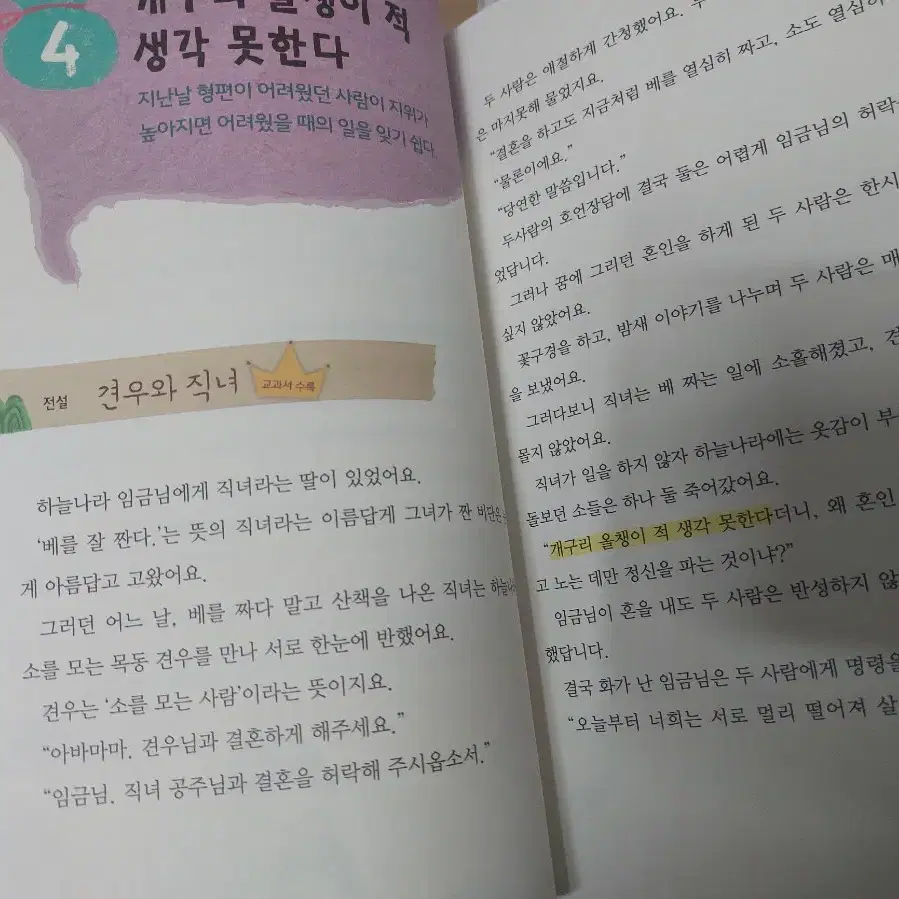 4
개구리 올챙이 적
생각 못한다
지난날 형편이 어려웠던 사람이 지위가
높아지면 어려웠을 때의 일을 잊기 쉽다.
전설 견우와 직녀 교과서 수록
하늘나라 임금님에게 직녀라는 딸이 있었어요.
'베를 잘 짠다.'는 뜻의 직녀라는 이름답게 그녀가 짠 비단은
게 아름답고 고왔어요.
그러던 어느 날, 베를 짜다 말고 산책을 나온 직녀는 하늘나
소를 모는 목동 견우를 만나 서로 한눈에 반했어요.
견우는 '소를 모는 사람'이라는 뜻이지요.
"아바마마. 견우님과 결혼하게 해주세요."
"임금님. 직녀 공주님과 결혼을 허락해 주시옵소서."
두 사람은 애절하게 간청했어요.
은 마지못해 물었지요.
"결혼을 하고도 지금처럼 베를 열심히 짜고, 소도 열심히
"물론이에요."
"당연한 말씀입니다."
두사람의 호언장담에 결국 둘은 어렵게 임금님의 허락
었답니다.
그러나 꿈에 그리던 혼인을 하게 된 두 사람은 한시
싶지 않았어요.
꽃구경을 하고, 밤새 이야기를 나누며 두 사람은 매
을 보냈어요.
그러다보니 직녀는 베 짜는 일에 소홀해졌고, 견
몰지 않았어요.
직녀가 일을 하지 않자 하늘나라에는 옷감이 부
돌보던 소들은 하나 둘 죽어갔어요.
"개구리 올챙이 적 생각 못한다더니, 왜 혼인
고 노는 데만 정신을 파는 것이냐?"
임금님이 혼을 내도 두 사람은 반성하지 않
했답니다.
결국 화가 난 임금님은 두 사람에게 명령을
"오늘부터 너희는 서로 멀리 떨어져 살